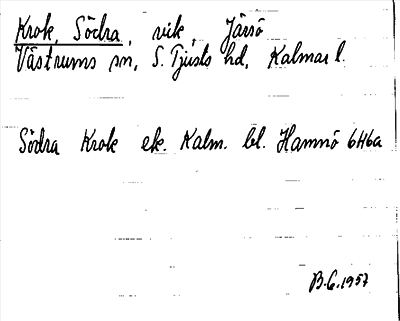 Krok, Södra, vik, Järsö
Västrums sn, S. Tjusts hd, Kalmar l.
Södra Krok ek. Kalm. bl. Hamnö 6H6a
B.G.1957